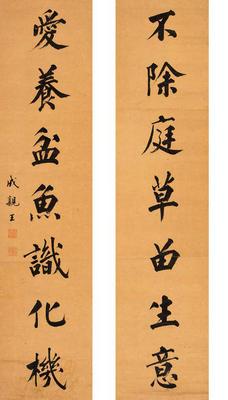 不除庭草留生意
愛養盆魚識化機
成親王